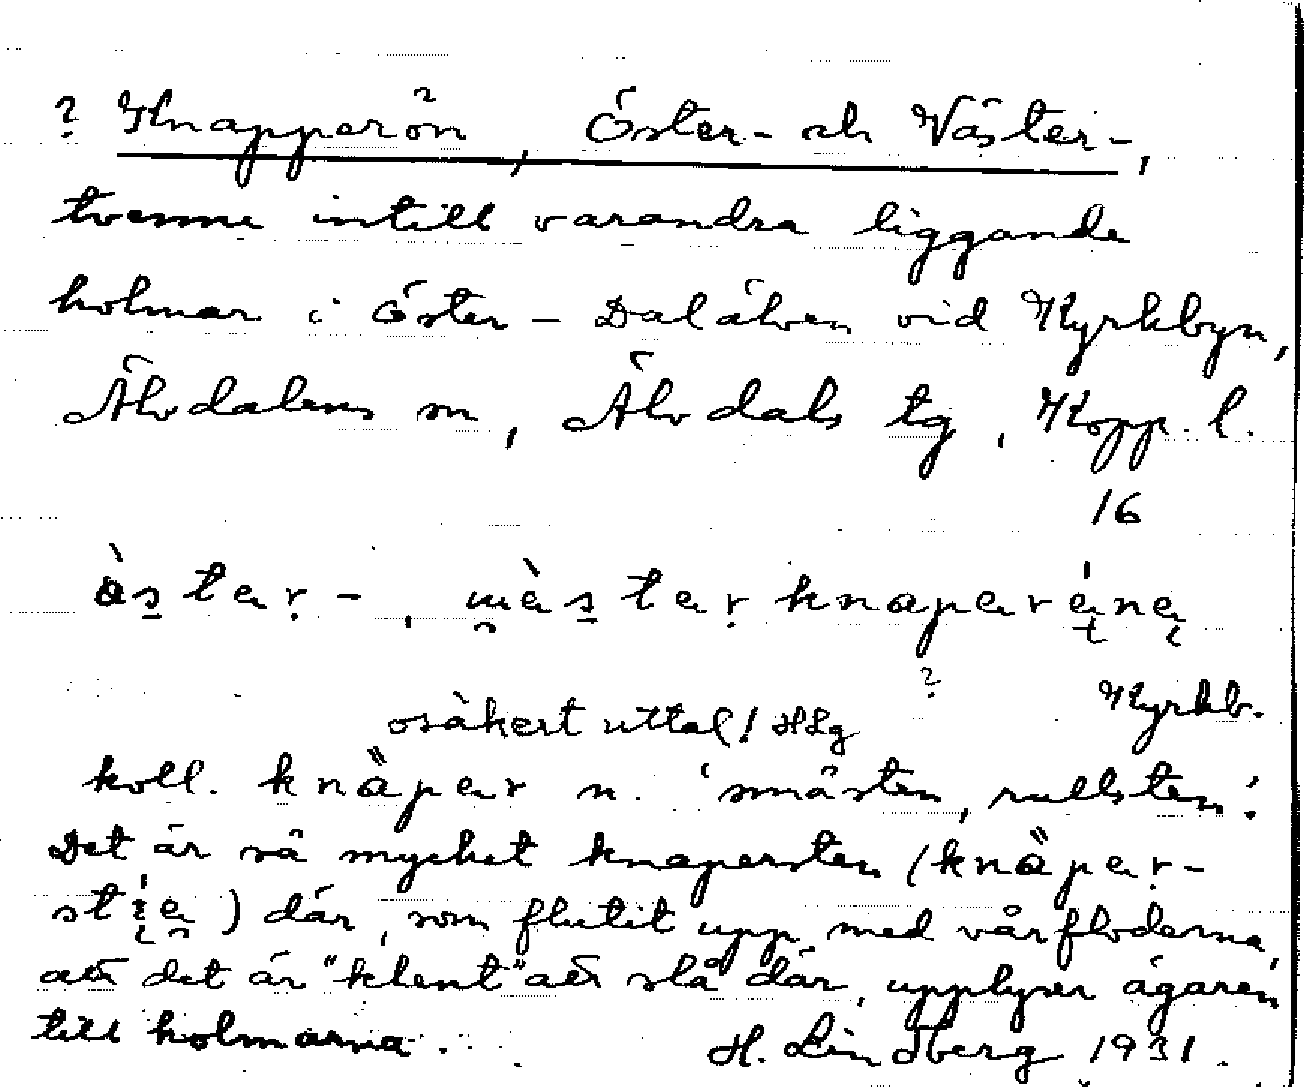 ? Knapperön, Öster- och Väster-,
tvenne intill varandra liggande
holmar i Öster-Dalälven vid Kyrkbyn,
Älvdalens sn, Älvdals tg, Kopp. l.
16
Kyrkb.
osäkert uttal! HLg
koll. knȁper n. 'småsten, rullsten'.
Det är så mycket knapersten (knȁper-
) där, som flutit upp med vårfloderna,
att det är "klent" att slå där, upplyser ägaren
till holmarna. H. Lindberg 1931.